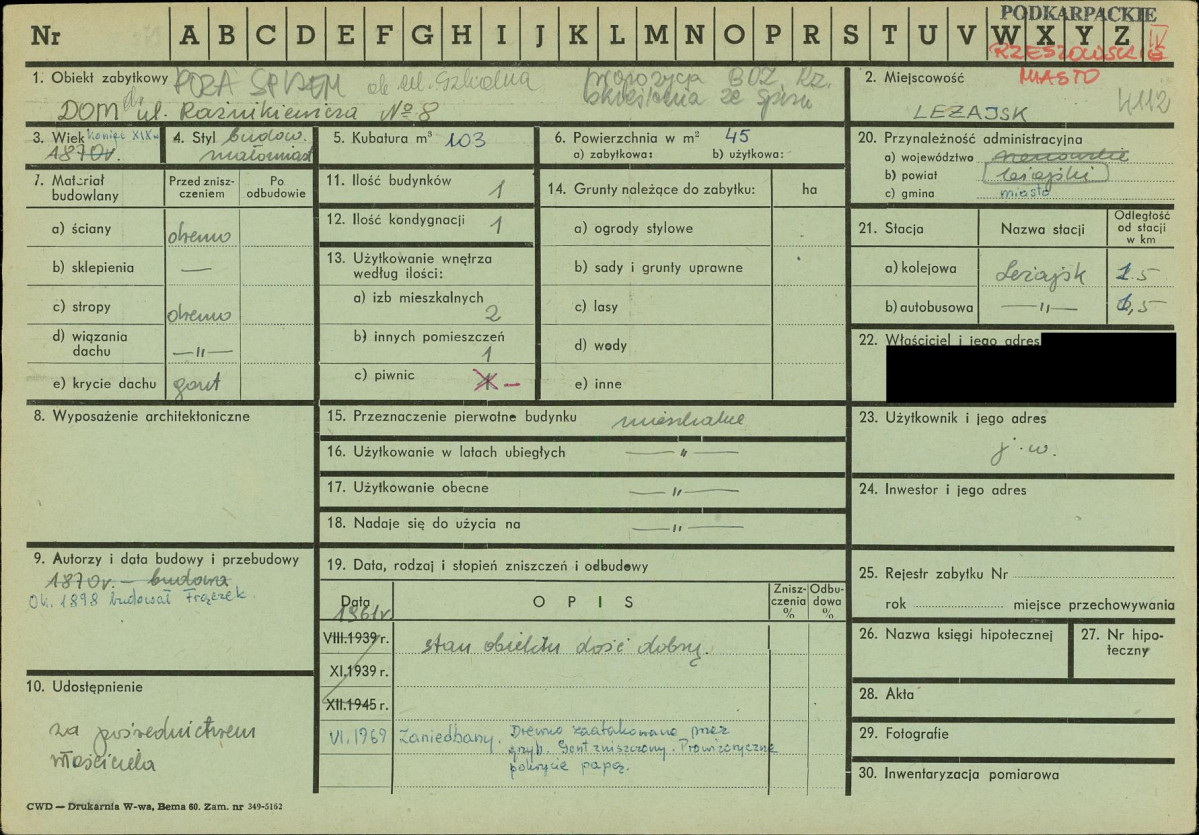 Nr A B C D E F G H I J K L M N O P R S T U V W X Y Z
PODKARPACKIE
IV
RZESZOWSKIE
MIASTO
1. Obiekt zabytkowy POZA SPISEM ob. ul. Szkolna
propozycja BDZ. Rz.
skreślenia ze spisu
DOM ul. Raźnikiewicza No 8
2. Miejscowość
LEŻAJSK
4112
3. Wiek koniec XIX w
1870r.
4. Styl budow.
małomiast
5. Kubatura m³ 103
6. Powierzchnia w m² 45
a) zabytkowa: b) użytkowa:
7. Materiał budowlany
Przed zniszczeniem
Po odbudowie
a) ściany drewno
b) sklepienia —
c) stropy drewno
d) wiązania dachu —"—
e) krycie dachu gont
8. Wyposażenie architektoniczne
9. Autorzy i data budowy i przebudowy
1870r. — budowa
Ok. 1898 budował Frączek
10. Udostępnienie
za pośrednictwem
właściciela
11. Ilość budynków 1
12. Ilość kondygnacji 1
13. Użytkowanie wnętrza
według ilości:
a) izb mieszkalnych
2
b) innych pomieszczeń
1
c) piwnic 1 —
14. Grunty należące do zabytku: ha
a) ogrody stylowe
b) sady i grunty uprawne
c) lasy
d) wody
e) inne
15. Przeznaczenie pierwotne budynku mieszkalne
16. Użytkowanie w latach ubiegłych —"—
17. Użytkowanie obecne —"—
18. Nadaje się do użycia na —"—
19. Data, rodzaj i stopień zniszczeń i odbudowy
Data OPIS Zniszczenia % Odbudowa %
1961r
VIII.1939 r. stan obiektu dość dobry.
XI.1939 r.
XII.1945 r.
VI.1969 Zaniedbany. Drewno zaatakowane przez
grzyb. Gont zniszczony. Prowizoryczne
pokrycie papą.
20. Przynależność administracyjna
a) województwo rzeszowskie
b) powiat leżajski
c) gmina miasto
21. Stacja Nazwa stacji Odległość od stacji w km
a) kolejowa Leżajsk 1.5
b) autobusowa —"— 1,5
22. Właściciel i jego adres
23. Użytkownik i jego adres
j. w.
24. Inwestor i jego adres
25. Rejestr zabytku Nr
rok miejsce przechowywania
26. Nazwa księgi hipotecznej
27. Nr hipoteczny
28. Akta
29. Fotografie
30. Inwentaryzacja pomiarowa
CWD — Drukarnia W-wa, Bema 60. Zam. nr 349-5162